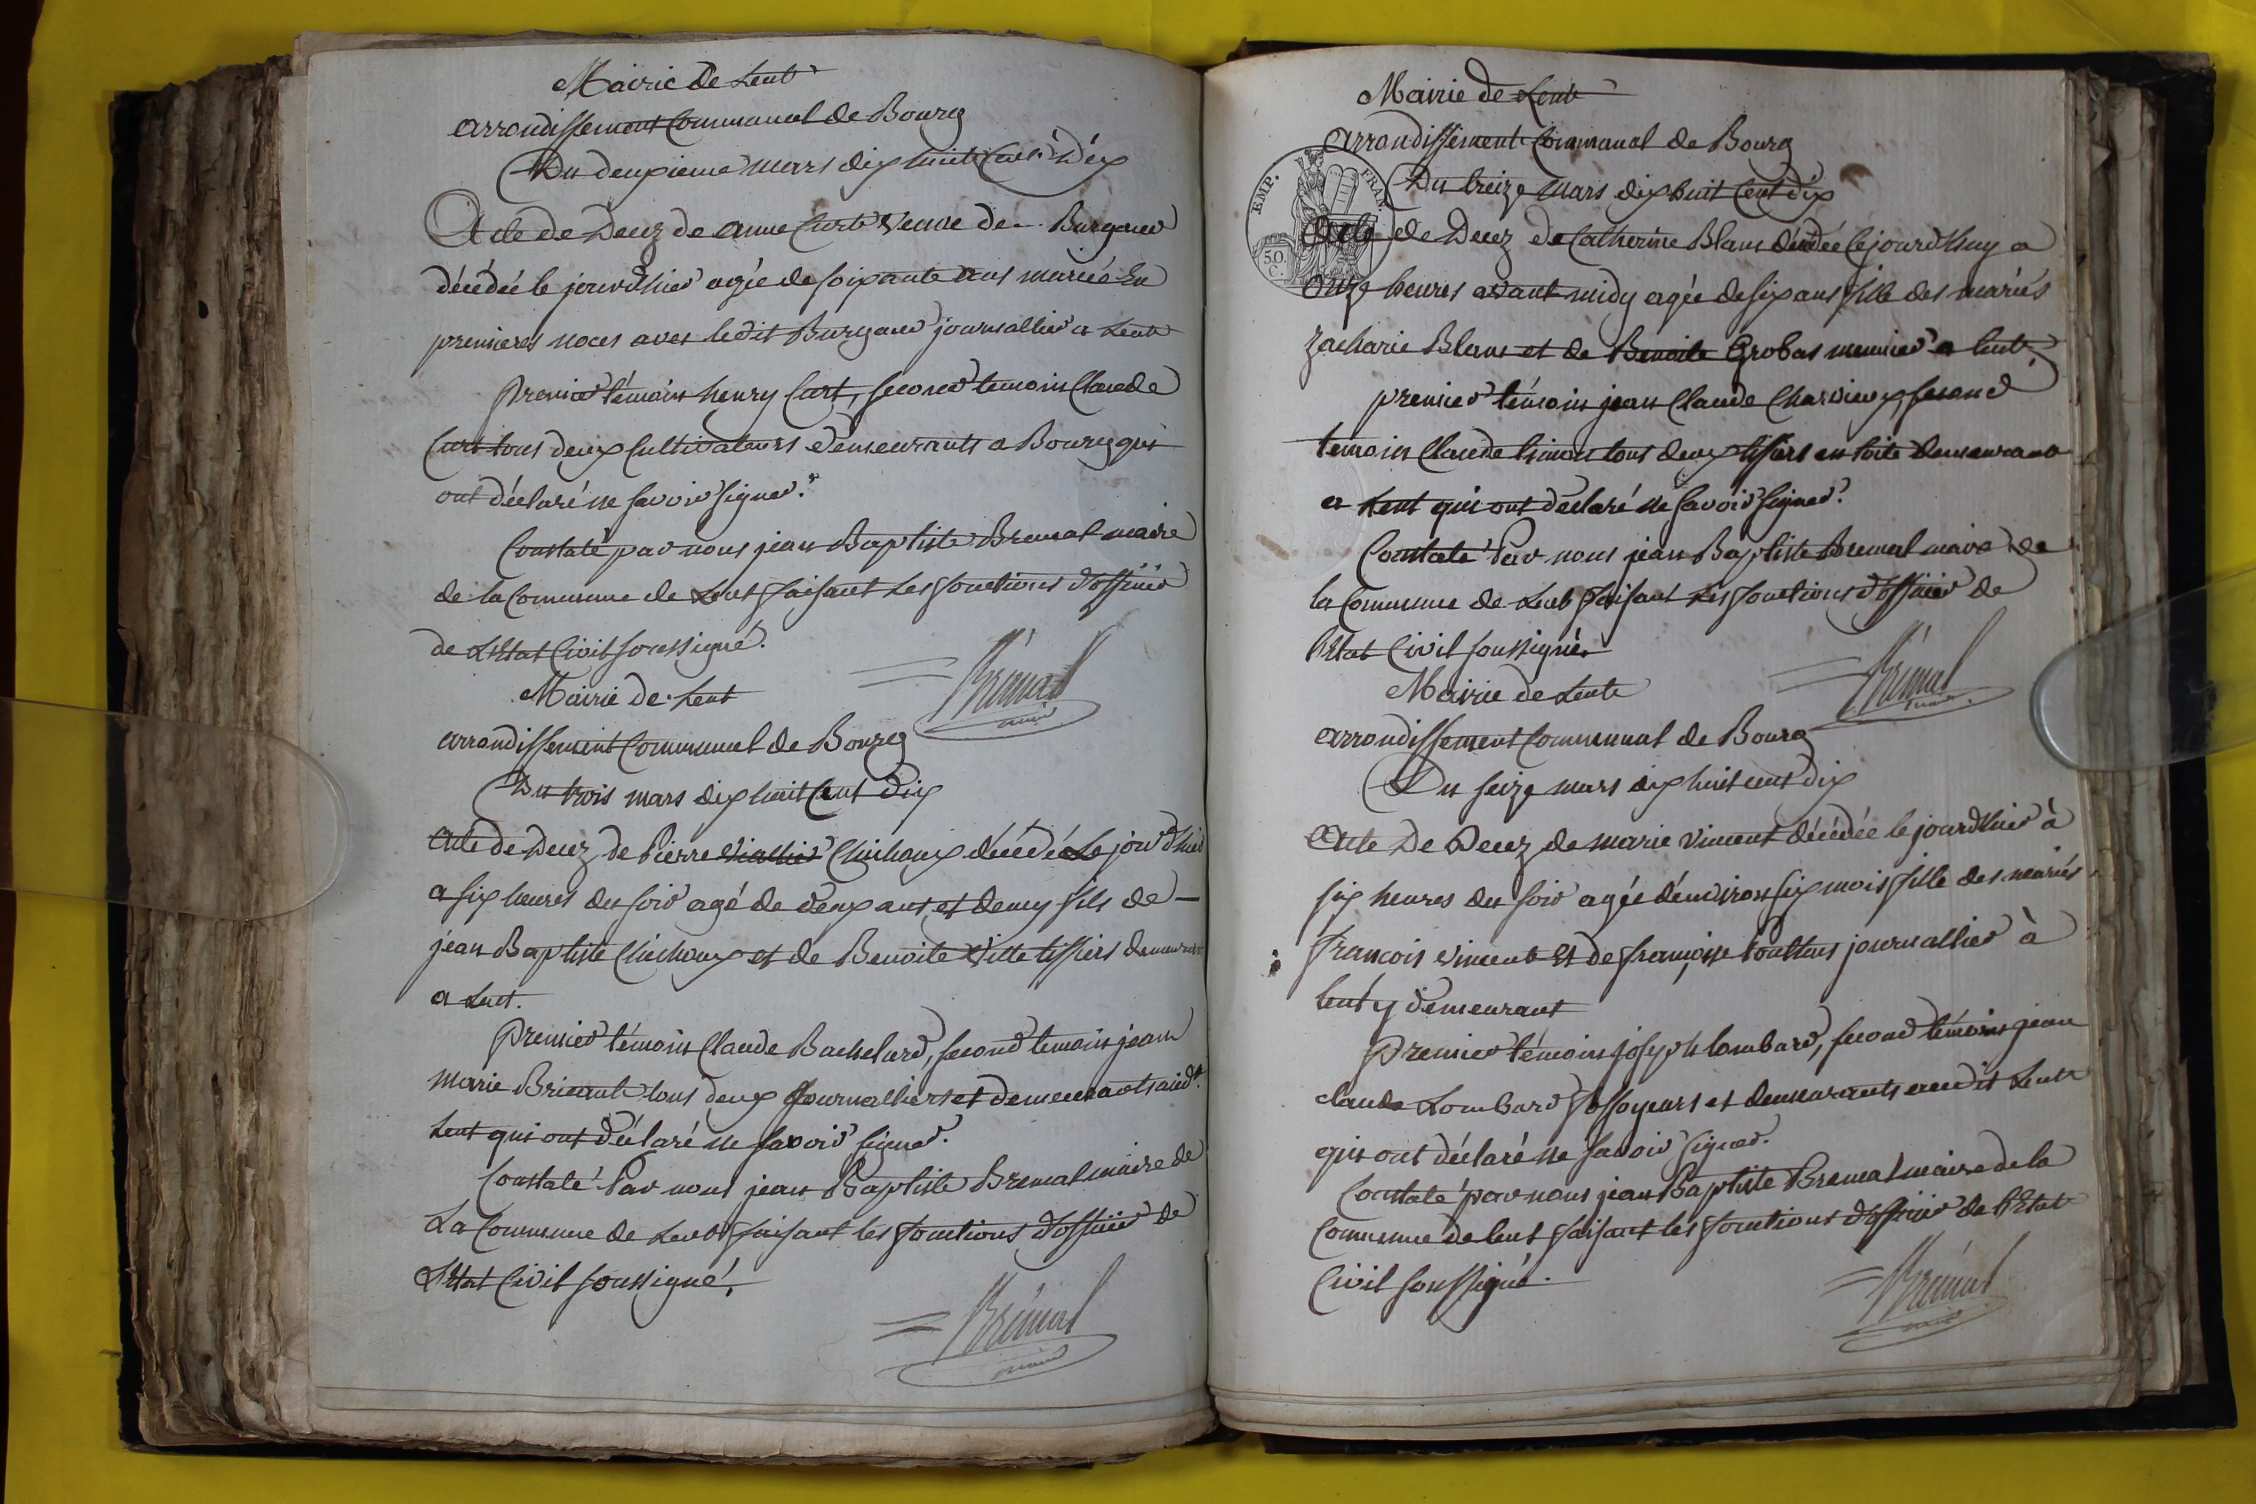 Mairie de Lent
arrondissement Communal de Bourg
Du deuxieme mars dix huit Cent Dix
Acte de Decez de anne Curt Veuve de Burgaud
décédée le jourd'hier agée de soixante ans mariée En
premieres noces avec ledit Burgaud journallier a Lent
Premier témoin henry Curt, second temoin Claude
Curt tous deux Cultivateurs demeurants a Bourg qui
ont déclaré ne savoir signer.
Constaté par nous jean Baptiste Bremal maire
de la Commune de Lent faisant Les fonctions d'officier
de L'Etat Civil soussigné.
Brémal
maire
Mairie de Lent
arrondissement Communal de Bourg
Du trois mars dix huit Cent Dix
Acte de Decez de Pierre Chichoux décédé Le jour d'hier
a six heures du soir agé de deux ans et demy fils de
jean Baptiste Chichoux et de Benoite Ville tissiers demeurant
a Lent.
Premier témoin Claude Bachelard, second temoin jean
marie Brienult tous deux Journalliers et demeurants aud.t
Lent qui ont déclaré ne savoir signer.
Constaté Par nous jean Baptiste Bremal maire de
La Commune de Lent faisant les fonctions d'officier de
L'Etat Civil soussigné.
Brémal
maire
Mairie de Lent
EMP. FRAN.
50. C.
arrondissement Communal de Bourg
Du treize mars dix huit Cent Dix
Acte de Decez de Catherine Blanc décédée Cejourd'huy a
Onze heures avant midy agée de six ans fille des mariés
zacharie Blanc et de Benoite Grobas meunier a lent
premier témoin jean Claude Charvieux, second
temoin Claude limon tous deux tissiers en toile demeurant
a Lent qui ont déclaré ne Savoir signer.
Constaté Par nous jean Baptiste Bremal maire de
la Commune de Lent faisant Les fonctions d'officier de
l'Etat Civil soussigné.
Brémal
maire
Mairie de Lent
arrondissement Communal de Bourg
Du seize mars dix huit cent dix
Acte De Decez de marie vincent décédée le jourd'hier à
six heures du soir agée d'environ six mois fille des mariés
francois vincent Et de françoise journallier à
lent y demeurant
Premier témoin joseph lombard, second témoin jean
claude Lombard fossoyeurs et demeurants audit Lent
qui ont déclaré ne savoir signer.
Constaté par nous jean Baptiste Bremal maire de la
Commune de lent faisant les fonctions d'officier de l'Etat
Civil soussigné.
Brémal
maire